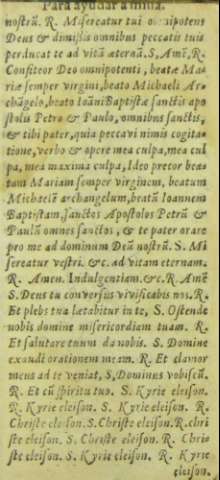 Para ayudar a missa.
nostrũ. R. Misereatur tui omnipotens
Deus & dimissis omnibus peccatis tuis
perducat te ad vitã æternã. S, Amẽ, R.
Confiteor Deo omnipotenti, beatæ Ma-
riæ semper virgini, beato Michaeli Ar-
chãgelo, beato Ioãni Baptistæ sanctis apo
stolis Petro & Paulo, omnibus sanctis,
& tibi pater, quia peccavi nimis cogita-
tione, verbo & opere mea culpa, mea cul
pa, mea maxima culpa, Ideo precor bea-
tam Mariam semper virginem, beatum
Michaelẽ archangelum, beatũ Ioannem
Baptistam, sanctos Apostolos Petrũ &
Paulũ omnes sanctos, & te pater orare
pro me ad dominum Deũ nostrũ. S. Mi
sereatur vestri. &c. ad vitam eternam.
R. Amen. Indulgentiam. &c. R Amẽ
S. Deus tu conversus vivificabis nos. R.
Et plebs tua lætabitur in te, S. Ostende
nobis domine misericordiam tuam. R.
Et salutare tuum da nobis. S. Domine
exaudi orationem meam. R. Et clamor
meus ad te veniat, S, Dominus vobiscũ.
R. Et cũ spiritu tuo. S. Kyrie eleison.
R. Kyrie eleison. S. Kyrie eleison. R.
Christe eleison. S. Christe eleison. R. chri
ste eleison. S. Christe eleison. R. Chri
ste eleison. S. Kyrie eleison. R. Kyrie
eleison.